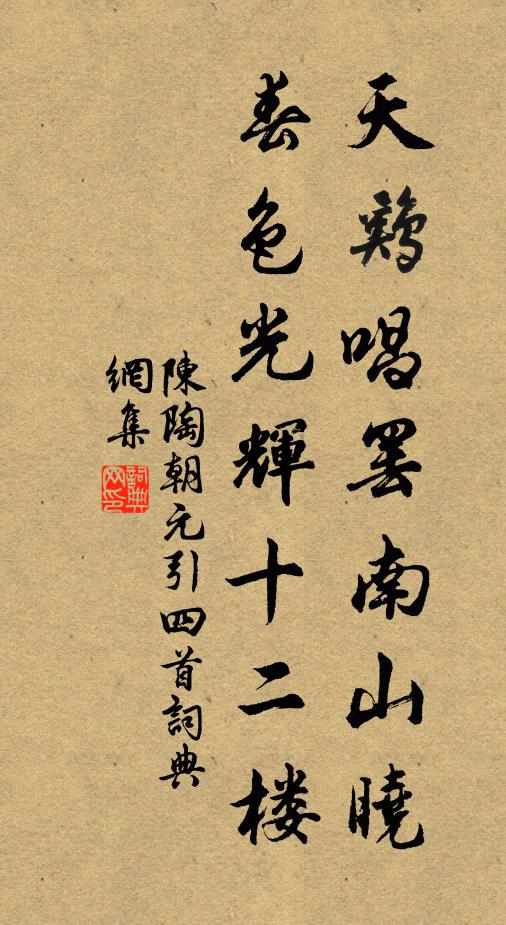 天鷄唱罢南山曉
春色光輝十二楼
陳陶朝元引四首詞典
網集
詞典
网印